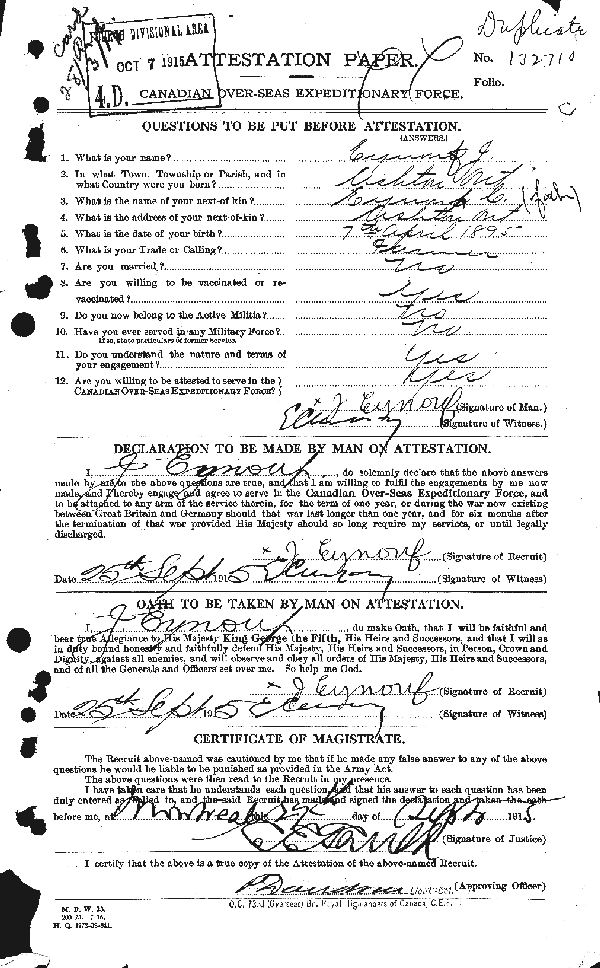 Duplicate
DIVISIONAL AREA
OCT 7 1915
4.D.
ATTESTATION PAPER.
No. 132710
Folio.
CANADIAN OVER-SEAS EXPEDITIONARY FORCE.
QUESTIONS TO BE PUT BEFORE ATTESTATION.
(ANSWERS.)
1. What is your name? Eynouf J.
2. In what Town, Township or Parish, and in
what Country were you born?
3. What is the name of your next-of kin? Eynouf C.
4. What is the address of your next-of-kin?
5. What is the date of your birth? 7th April 1895
6. What is your Trade or Calling?
7. Are you married? No
8. Are you willing to be vaccinated or re-
vaccinated? Yes
9. Do you now belong to the Active Militia? No
10. Have you ever served in any Military Force? No
If so, state particulars of former service
11. Do you understand the nature and terms of
your engagement? Yes
12. Are you willing to be attested to serve in the } Yes
CANADIAN OVER-SEAS EXPEDITIONARY FORCE? }
x J Eynouf (Signature of Man.)
(Signature of Witness.)
DECLARATION TO BE MADE BY MAN ON ATTESTATION.
I, J Eynouf, do solemnly declare that the above answers
made by me to the above questions are true, and that I am willing to fulfil the engagements by me now
made, and I hereby engage and agree to serve in the Canadian Over-Seas Expeditionary Force, and
to be attached to any arm of the service therein, for the term of one year, or during the war now existing
between Great Britain and Germany should that war last longer than one year, and for six months after
the termination of that war provided His Majesty should so long require my services, or until legally
discharged.
x J Eynouf (Signature of Recruit)
Date 25th Sept 1915 (Signature of Witness)
OATH TO BE TAKEN BY MAN ON ATTESTATION.
I, J Eynouf, do make Oath, that I will be faithful and
bear true Allegiance to His Majesty King George the Fifth, His Heirs and Successors, and that I will as
in duty bound honestly and faithfully defend His Majesty, His Heirs and Successors, in Person, Crown and
Dignity, against all enemies, and will observe and obey all orders of His Majesty, His Heirs and Successors,
and of all the Generals and Officers set over me. So help me God.
x J Eynouf (Signature of Recruit)
Date 25th Sept 1915 (Signature of Witness)
CERTIFICATE OF MAGISTRATE.
The Recruit above-named was cautioned by me that if he made any false answer to any of the above
questions he would be liable to be punished as provided in the Army Act.
The above questions were then read to the Recruit in my presence.
I have taken care that he understands each question, and that his answer to each question has been
duly entered as replied to, and the said Recruit has made and signed the declaration and taken the oath
before me, at Montreal this 27 day of Sept 1915.
(Signature of Justice)
I certify that the above is a true copy of the Attestation of the above-named Recruit.
Lieut-Col. (Approving Officer)
O.C. 73rd (Overseas) Bn. Royal Highlanders of Canada, C.E.F.
M. D. W. 23.
H. Q. 1772-39-841.